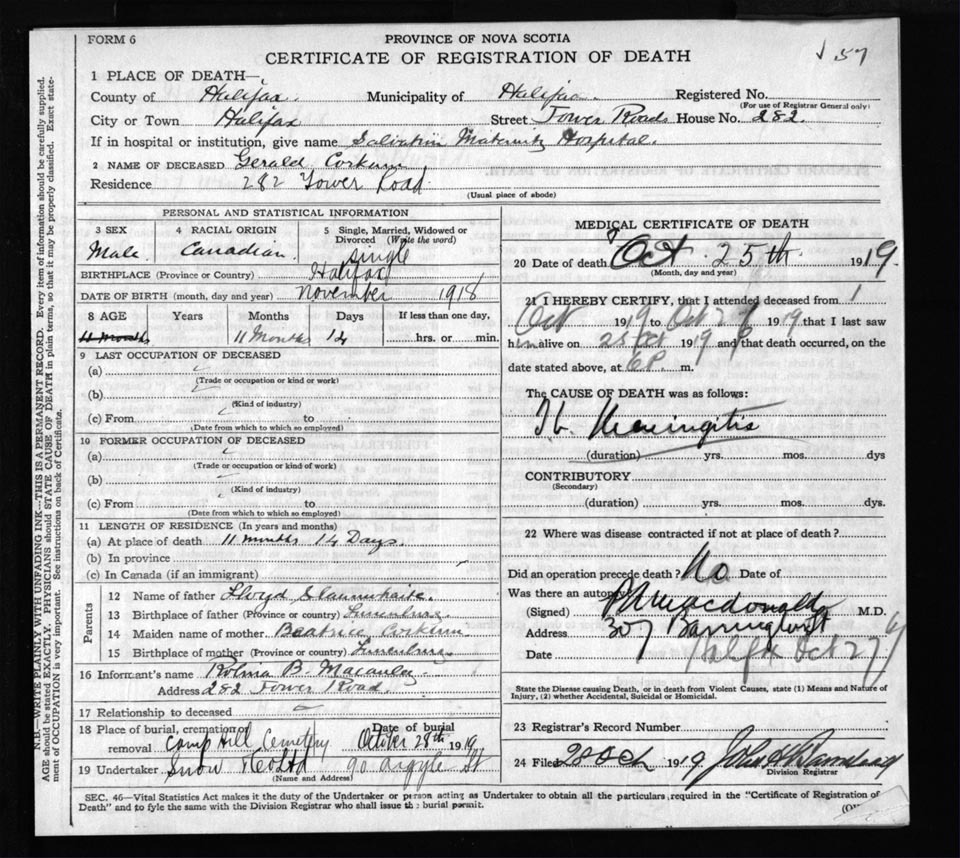 FORM 6
PROVINCE OF NOVA SCOTIA
CERTIFICATE OF REGISTRATION OF DEATH
57
1 PLACE OF DEATH—
County of Halifax. Municipality of Halifax. Registered No.
(For use of Registrar General only)
City or Town Halifax Street Tower Road House No. 282.
If in hospital or institution, give name Salvation Maternity Hospital.
2 NAME OF DECEASED Gerald Corkum
Residence 282 Tower Road
(Usual place of abode)
PERSONAL AND STATISTICAL INFORMATION
3 SEX 4 RACIAL ORIGIN 5 Single, Married, Widowed or Divorced (Write the word)
Male. Canadian. Single
BIRTHPLACE (Province or Country) Halifax
DATE OF BIRTH (month, day and year) November 1918
8 AGE Years Months Days If less than one day,
11 Months 11 Months 14 hrs. or min.
9 LAST OCCUPATION OF DECEASED
(a)
(Trade or occupation or kind or work)
(b)
(Kind of industry)
(c) From to
(Date from which to which so employed)
10 FORMER OCCUPATION OF DECEASED
(a)
(Trade or occupation or kind of work)
(b)
(Kind of industry)
(c) From to
(Date from which to which so employed)
11 LENGTH OF RESIDENCE (In years and months)
(a) At place of death 11 months 14 Days.
(b) In province
(c) In Canada (if an immigrant)
Parents
12 Name of father Lloyd Slaunwhite.
13 Birthplace of father (Province or country) Lunenburg.
14 Maiden name of mother. Beatrice Corkum
15 Birthplace of mother (Province or country) Lunenburg.
16 Informant's name B. Macauley
Address 282 Tower Road.
17 Relationship to deceased
18 Place of burial, cremation or removal Camp Hill Cemetery Date of burial October 28th 1919
19 Undertaker Snow & Co Ltd 90 Argyle St
(Name and Address)
MEDICAL CERTIFICATE OF DEATH
20 Date of death Oct. 25th. 1919.
(Month, day and year)
21 I HEREBY CERTIFY, that I attended deceased from 1
Oct 1919 to Oct 1919 that I last saw
him alive on 25 Oct 1919 and that death occurred, on the
date stated above, at 6P m.
The CAUSE OF DEATH was as follows:
Tb. Meningitis
(duration) yrs. mos. dys
CONTRIBUTORY
(Secondary)
(duration) yrs. mos. dys.
22 Where was disease contracted if not at place of death?
Did an operation precede death? No Date of
Was there an autopsy
(Signed) Macdonald M.D.
Address 307 Barrington St
Date Halfx Oct 27/19
State the Disease causing Death, or in death from Violent Causes, state (1) Means and Nature of
Injury, (2) whether Accidental, Suicidal or Homicidal.
23 Registrar's Record Number
24 Filed 28 Oct 1919 John
Division Registrar
SEC. 46—Vital Statistics Act makes it the duty of the Undertaker or person acting as Undertaker to obtain all the particulars required in the "Certificate of Registration of
Death" and to fyle the same with the Division Registrar who shall issue the burial permit.
N.B.—WRITE PLAINLY WITH UNFADING INK—THIS IS A PERMANENT RECORD. Every item of information should be carefully supplied.
AGE should be stated EXACTLY. PHYSICIANS should STATE CAUSE OF DEATH in plain terms, so that it may be properly classified. Exact state-
ment of OCCUPATION is very important. See instructions on back of Certificate.